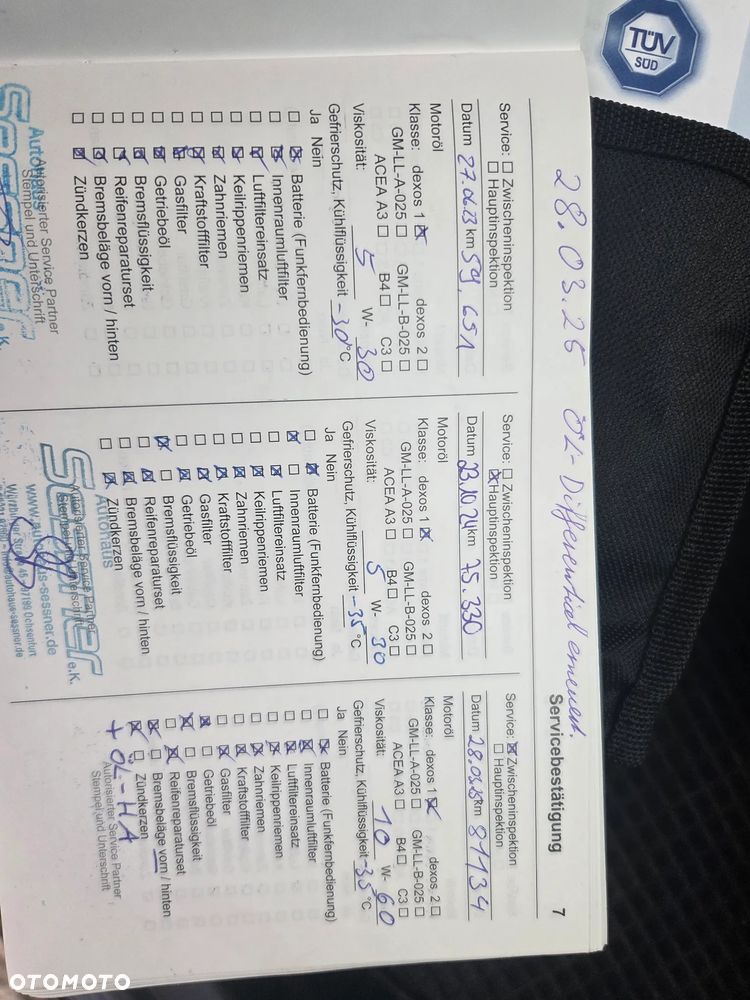 Servicebestätigung 7
28.03.25 ÖL-Differential erneuert.
Service: ☐ Zwischeninspektion
☐ Hauptinspektion
Datum 27.06.23 km 59,651
Motoröl
Klasse: dexos 1 ☒ dexos 2 ☐
GM-LL-A-025 ☐ GM-LL-B-025 ☐
ACEA A3 ☐ B4 ☐ C3 ☐
Viskosität: 5 W- 30
Gefrierschutz, Kühlflüssigkeit -30 °C
Ja Nein
☐ ☒ Batterie (Funkfernbedienung)
☐ ☒ Innenraumluftfilter
☐ ☒ Luftfiltereinsatz
☐ ☒ Keilrippenriemen
☐ ☒ Zahnriemen
☐ ☒ Kraftstofffilter
☐ ☒ Gasfilter
☐ ☒ Getriebeöl
☐ ☒ Bremsflüssigkeit
☐ ☒ Reifenreparaturset
☐ ☒ Bremsbeläge vorn / hinten
☐ ☒ Zündkerzen
Autorisierter Service Partner
Stempel und Unterschrift
Autohaus
e.K.
Service: ☐ Zwischeninspektion
☒ Hauptinspektion
Datum 23.10.24 km 75.330
Motoröl
Klasse: dexos 1 ☒ dexos 2 ☐
GM-LL-A-025 ☐ GM-LL-B-025 ☐
ACEA A3 ☐ B4 ☐ C3 ☐
Viskosität: 5 W- 30
Gefrierschutz, Kühlflüssigkeit -35 °C
Ja Nein
☐ ☒ Batterie (Funkfernbedienung)
☒ ☐ Innenraumluftfilter
☐ ☒ Luftfiltereinsatz
☐ ☒ Keilrippenriemen
☐ ☒ Zahnriemen
☐ ☒ Kraftstofffilter
☐ ☒ Gasfilter
☐ ☒ Getriebeöl
☒ ☐ Bremsflüssigkeit
☐ ☒ Reifenreparaturset
☐ ☒ Bremsbeläge vorn / hinten
☐ ☒ Zündkerzen
Autohaus
Sessner e.K.
Autorisierter Service Partner
Würzburger Str. 45 · 97199 Ochsenfurt
Service: ☒ Zwischeninspektion
☐ Hauptinspektion
Datum 28.03.25 km 81134
Motoröl
Klasse: dexos 1 ☒ dexos 2 ☐
GM-LL-A-025 ☐ GM-LL-B-025 ☐
ACEA A3 ☐ B4 ☐ C3 ☐
Viskosität: 10 W- 60
Gefrierschutz, Kühlflüssigkeit -35 °C
Ja Nein
☐ ☒ Batterie (Funkfernbedienung)
☐ ☒ Innenraumluftfilter
☐ ☒ Luftfiltereinsatz
☐ ☒ Keilrippenriemen
☐ ☒ Zahnriemen
☐ ☒ Kraftstofffilter
☐ ☒ Gasfilter
☒ ☐ Getriebeöl
☒ ☐ Bremsflüssigkeit
☐ ☒ Reifenreparaturset
☒ ☐ Bremsbeläge vorn / hinten
☒ ☐ Zündkerzen
+ ÖL-HA
Autorisierter Service Partner
Stempel und Unterschrift
TÜV
SÜD
OTOMOTO